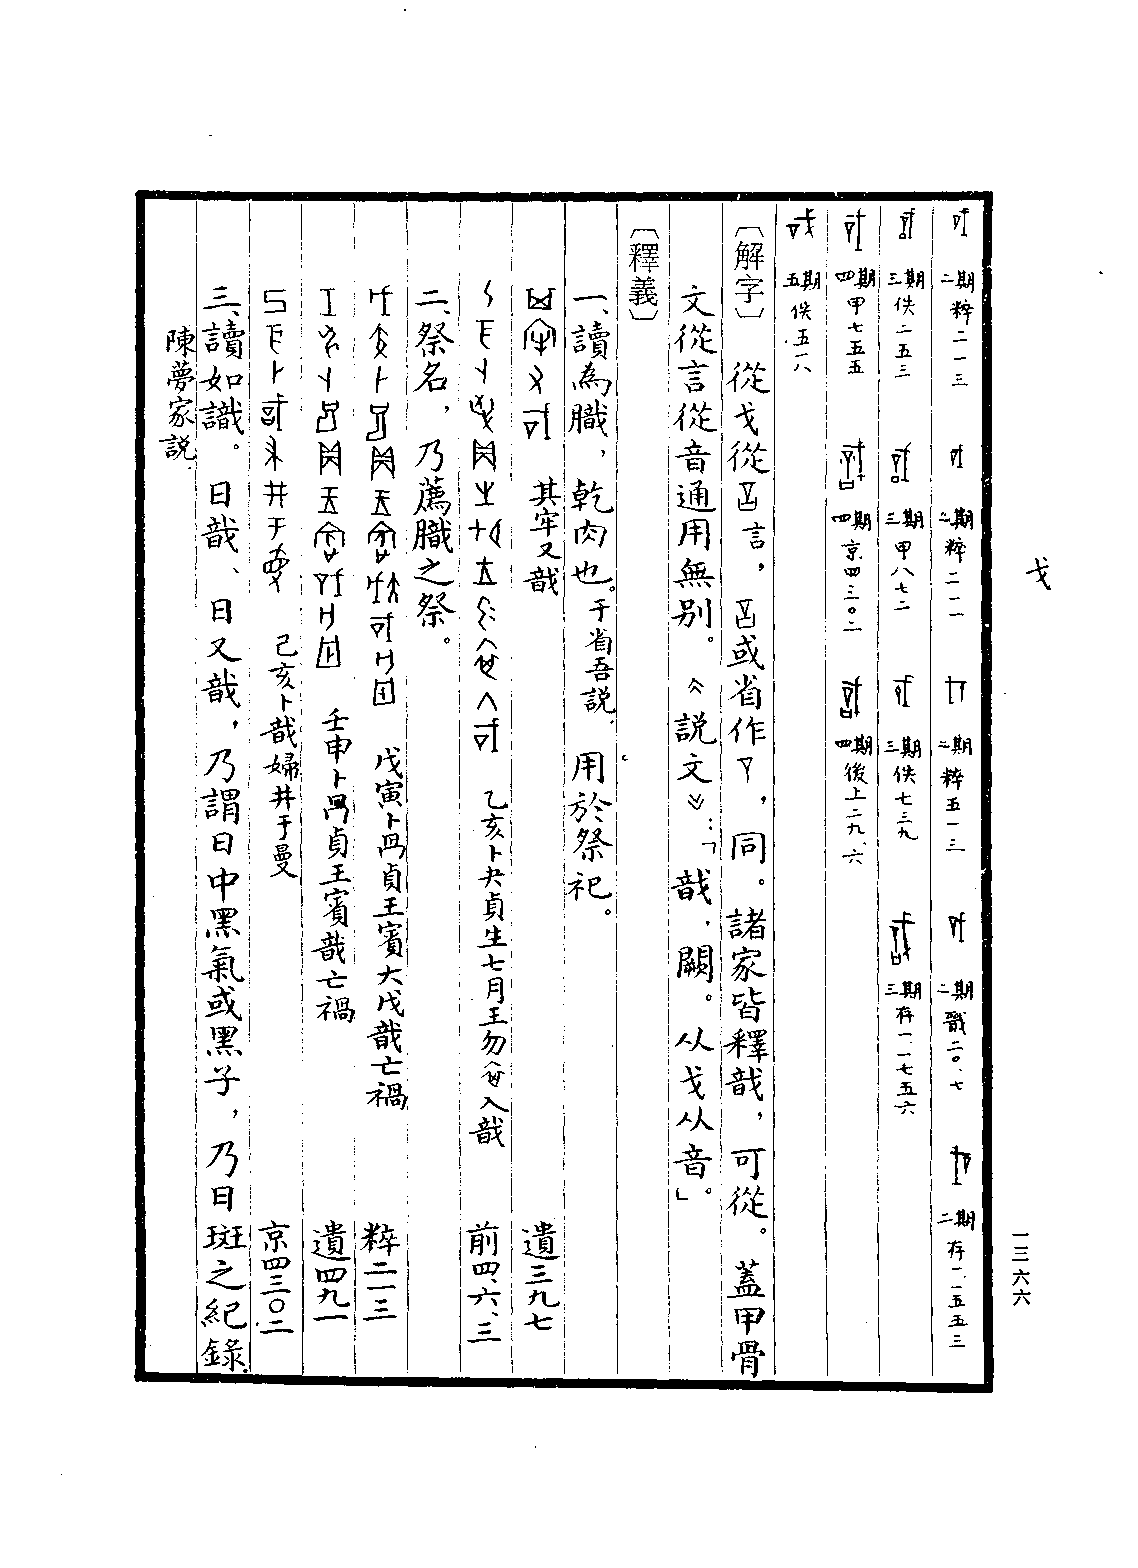 戈
一三六六
二期 粹二一三 二期 粹二一一 二期 粹五一三 二期 戩二〇.七 二期 存一.一五五三
三期 佚二五三 三期 甲八七二 三期 佚七三九 三期 存一.一七五六
四期 甲七五五 四期 京四三〇二 四期 後上二九.六
五期 佚五一八
〔解字〕 從戈從言，或省作，同。諸家皆釋戠，可從。蓋甲骨
文從言從音通用無別。《說文》：「戠，闕。从戈从音」。
〔釋義〕
一、讀為膱，乾肉也。于省吾説。用於祭祀。
其牢又戠 遺三九七
乙亥卜 貞生七月王勿 入戠 前四.六.三
二、祭名，乃薦膱之祭。
戊寅卜 貞王賓大戊戠亡禍 粹二一三
壬申卜 貞王賓戠亡禍 遺四九一
己亥卜戠婦井于 京四三〇二
三、讀如識。日戠、日又戠，乃謂日中黑氣或黑子，乃日斑之紀錄.
陳夢家説.